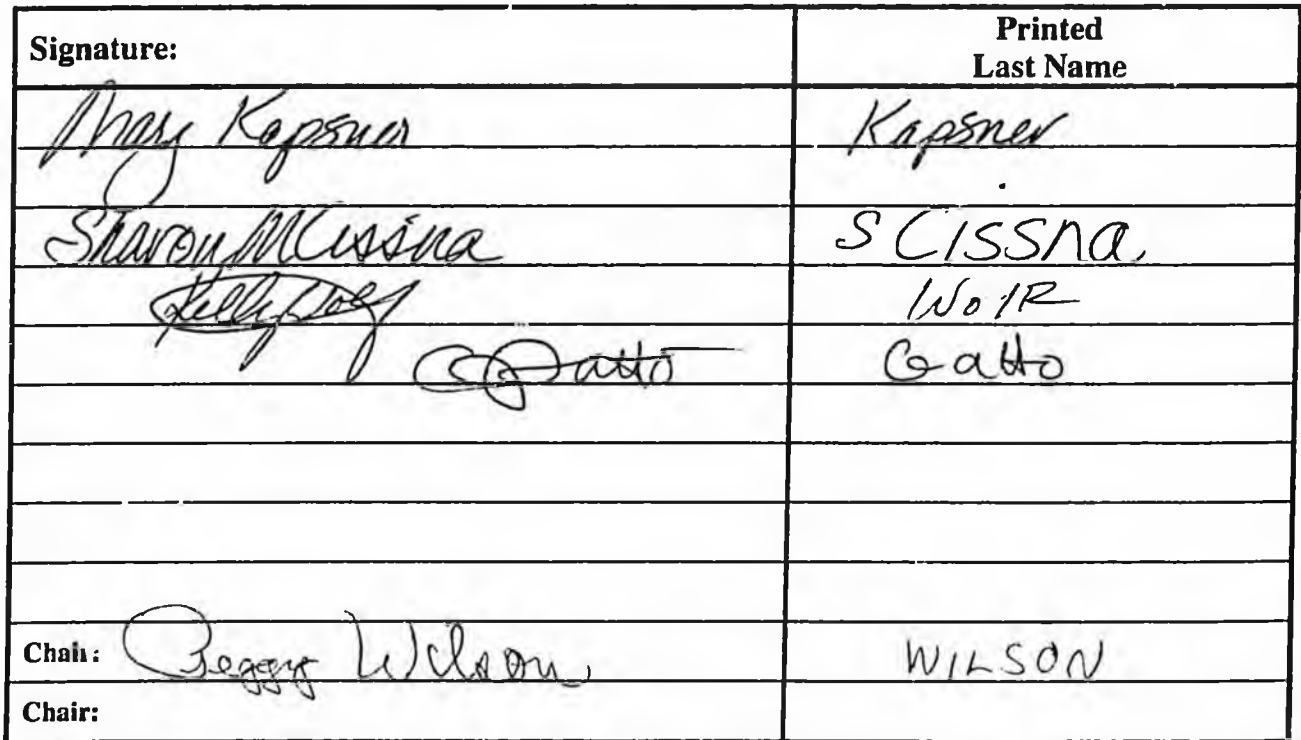 Signature: Printed Last Name
Mary Kapsner Kapsner
Sharon M Cissna S Cissna
Gatto Gatto
Chair: Peggy Wilson WILSON
Chair: